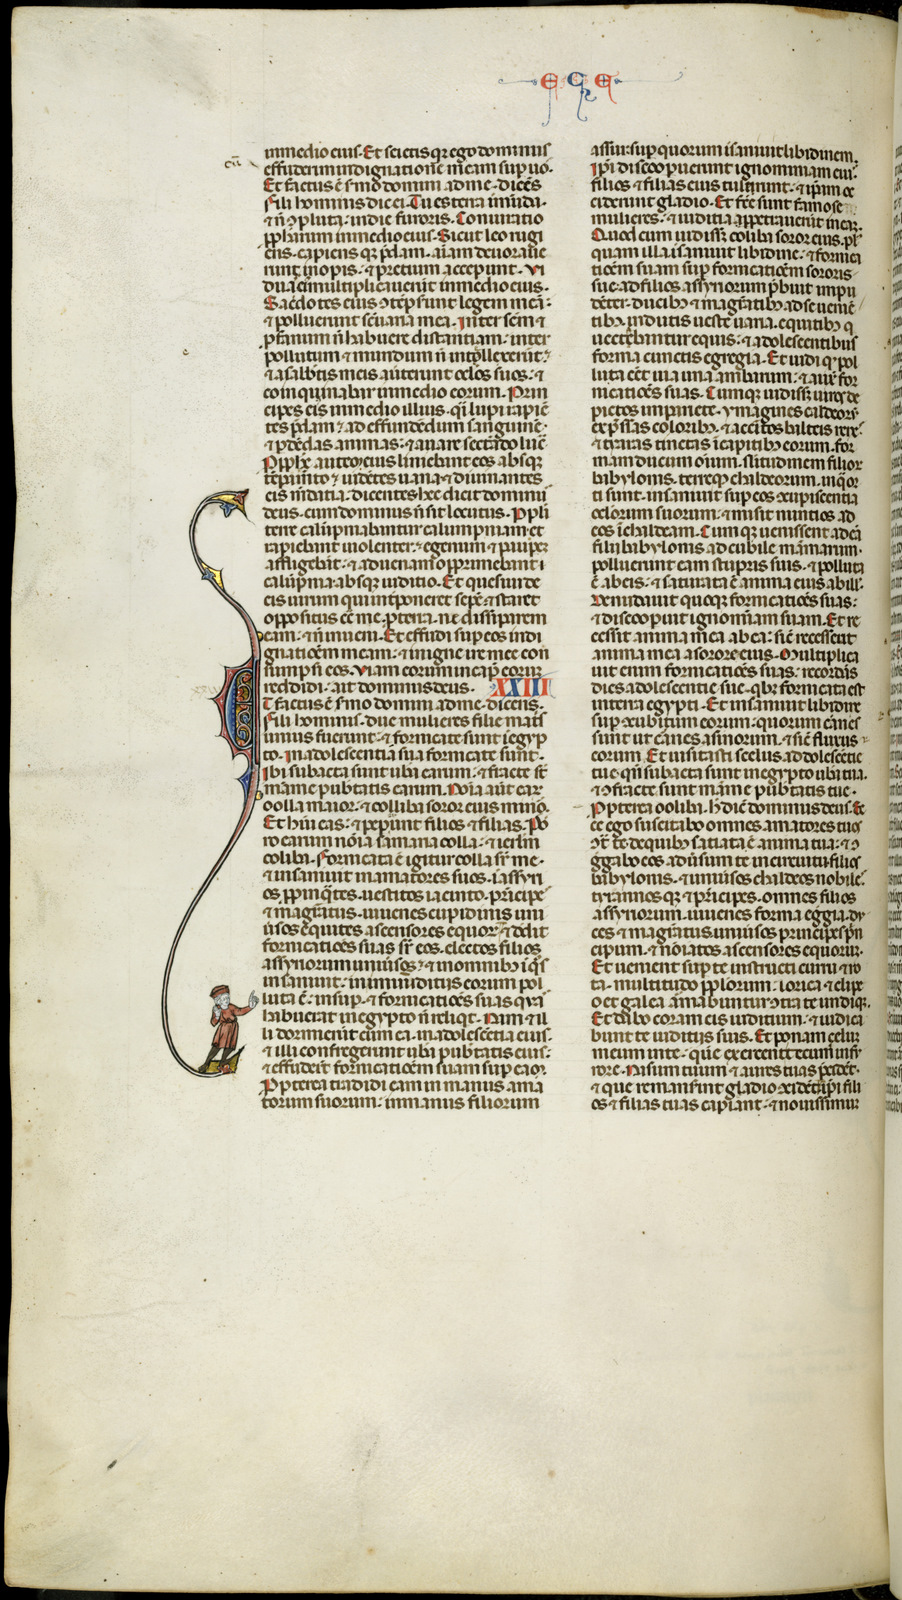 E C E
in medio eius. Et scietis qz ego dominus
cū
effuderim indignationē meam sup uos.
Et factus ē smo domini ad me. dicēs
Fili hominis dic ei. Tu es terra inmūda.
⁊ nō ꝯpluta. in die furoris. Coniuratio
ꝓphetarum in medio eius. Sicut leo rugi
ens. capiens qz ꝑdam. aīam deuoraue
runt. inopis. ⁊ pretium accepunt. Vi
duas eius multiplicauerūt in medio eius.
Sacdotes eius ꝯtēpsunt legem meā.
⁊ polluerunt scuaria mea. Inter scm ⁊
ꝓfanum nō habuere distantiam. inter
pollutum ⁊ mundum nō intellexerūt.
⁊ a sabbtis meis auterunt oclos suos. ⁊
coinquinabar in medio eorum. Prin
cipes eis in medio illius. qsi lupi rapiē
tes ꝑdam. ⁊ ad effundēdum sanguinē.
⁊ ꝑdēdas animas. ⁊ auare sectādo lucᵃ.
Pphe autem eius liniebant eos absqz
tēpamēto. uidētes uana. ⁊ diuinantes
eis mēdatia. dicentes hec dicit dominus
deus. cum dominus nō sit locutus. Ppli
terre calūpniabantur calumpniam. et
rapiebant uiolenter. ⁊ egenum ⁊ paupez
affligebāt. ⁊ aduenam opprimebant
calūpnia absqz iuditio. Et quesiui de
eis uirum qui intponeret sepē ⁊ staret
oppositus cō me ꝓ terra. ne dissiparem
eam. ⁊ nō inueni. Et effudi sup eos indi
gnationē meam. ⁊ in igne ire mee con
sumpsi eos. Viam eorum in capᵉ eorum
reddidi. ait dominus deus. XXIII
ET factus ē smo domini ad me. dicens.
Fili hominis. due mulieres filie matˢ
unius fuerunt. ⁊ fornicate sunt ī egyp
to. In adolescentia sua fornicate sunt.
Ibi subacta sunt ubera earum. ⁊ fracte sunt
māme pubtatis earum. Noīa aūt eaꝝ
oolla maior. ⁊ oolliba soror eius minor.
Et hūi eas. ⁊ pepunt filios ⁊ filias. Por
ro earum noīa samaria oolla. ⁊ ierlm
ooliba. Fornicata ē igitur oolla sup me.
⁊ insaniuit in amatores suos. ī assyri
os ꝓpinqntes. uestitos iacinto. principe
⁊ magratus. iuuenes cupidinis. uni
uersos equites ascensores equoꝝ. ⁊ dedit
fornicatiōes suas sup eos. electos filios
assyriorum uniuersos. ⁊ in omnibus ī qs
insaniuit. in inmunditiis eorum pol
luta ē. Insup ⁊ fornicatiōes suas qs
habuerat in egypto nō reliqt. Nam ⁊ il
li dormierūt cum ea. in adolescētia eius.
⁊ illi confregerunt ubera pubtatis eius.
⁊ effuderūt fornicatiōem suam sup eam.
Ppterea tradidi eam in manus ama
torum suorum. in manus filiorum
assur. sup quorum īsaniuit libidinem.
Ipi discoopuerunt ignominiam eius.
filios ⁊ filias eius tulerunt. ⁊ ipam oc
ciderunt gladio. Et fcē sunt famose
mulieres. ⁊ iuditia ꝑpetrauerūt in ea.
Quod cum uidissz ooliba soror eius. plus
quam illa īsaniuit libidine. ⁊ fornica
tiōem suam sup fornicatiōem sororis
sue. ad filios assyriorum ꝑbuit impu
dēter. ducibus ⁊ magratibus ad se uenien
tibus. indutis ueste uaria. equitibus q
uectebantur equis. ⁊ adolescentibus
forma cunctis egregia. Et uidi qz pol
luta eēt uia una ambarum. ⁊ auxit for
nicatiōes suas. Cumqz uidissz uiros de
pictos in pariete. ymagines caldeorum
expssas coloribus. ⁊ accītos balteis renes.
⁊ tyaras tinctas ī capitibus eorum. for
mam ducum oīum. silitudinem filior
babylonis. terreqz chaldeorum. in qua or
ti sunt. insaniuit sup eos ꝯcupiscentia
oclorum suorum. ⁊ misit nuntios ad
eos ī chaldeam. Cumqz uenissent ad eā
filii babylonis ad cubile mammarum.
polluerunt eam stupris suis. ⁊ polluta
ē ab eis. ⁊ saturata ē anima eius ab illis.
Denudauit quoqz fornicatiōes suas.
⁊ discoopuit ignominiam suam. Et re
cessit anima mea ab ea. sic recesserat
anima mea a sorore eius. Multiplica
uit enim fornicatiōes suas. recordās
dies adolescentie sue. qbus fornicata est
in terra egypti. Et insaniuit libidine
sup ꝯcubitum eorum. quorum carnes
sunt ut carnes asinorum. ⁊ sic fluxus
eorum. Et uisitasti scelus adolescētie
tue. qn subacta sunt in egypto ubera tua.
⁊ ꝯfracte sunt māme pubtatis tue.
Ppterea ooliba. hec dicit dominus deus. Ec
ce ego suscitabo omnes amatores tuos
ꝯtra te. de quibus satiata ē anima tua. ⁊ ꝯ
ggabo eos aduersum te in circuitu. filios
babylonis. ⁊ uniuersos chaldeos. nobiles
tyrannosqz ⁊ principes. omnes filios
assyriorum. iuuenes forma egregia. du
ces ⁊ magratus. uniuersos principes prin
cipum. ⁊ noīatos ascensores equorum.
Et uenient sup te instructi curru ⁊ ro
ta. multitudo pplorum. lorica ⁊ clipe
o et galea armabuntur ꝯtra te undiqz.
Et dabo coram eis iuditium. ⁊ iudica
bunt te iuditiis suis. Et ponam zelum
meum in te. quē exerceāt tecum in fu
rore. Nasum tuum ⁊ aures tuas ꝑcidēt.
⁊ que remanserint gladio ꝯcidēt. Ipi fili
os ⁊ filias tuas capiant. ⁊ nouissimum